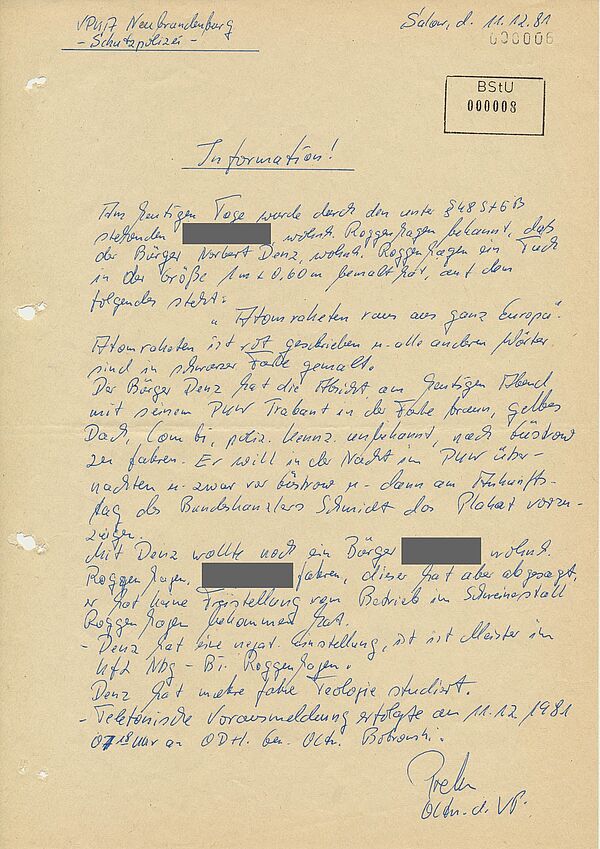 VPKA Neubrandenburg
- Schutzpolizei -
Salow, d. 11.12.81
000006
BStU
000008
Information!
Am heutigen Tage wurde durch den unter § 48 StGB
stehenden wohnh. Roggenhagen bekannt, daß
der Bürger Norbert Denz, wohnh. Roggenhagen ein Tuch
in der Größe 1m x 0,60m bemalt hat, auf dem
folgendes steht:
„Atomraketen raus aus ganz Europa".
Atomraketen ist rot geschrieben u. alle anderen Wörter
sind in schwarzer Farbe gemalt.
Der Bürger Denz hat die Absicht am heutigen Abend
mit seinem PKW Trabant in der Farbe braun, gelbes
Dach, Combi, poliz. Kennz. unbekannt, nach Güstrow
zu fahren. Er will in der Nacht im PKW über-
nachten u. zwar vor Güstrow u. dann am Ankunfts-
tag des Bundeskanzlers Schmidt das Plakat vorzu-
zeigen.
Mit Denz wollte noch ein Bürger wohnh.
Roggenhagen, fahren, dieser hat aber abgesagt,
er hat keine Freistellung vom Betrieb im Schweinestall
Roggenhagen bekommen hat.
- Denz hat eine negat. Einstellung, ist ist Meister im
KfL Nbg - Bt. Roggenhagen.
Denz hat mehre Jahre Teologie studiert.
- Telefonische Vorausmeldung erfolgte am 11.12.1981
Uhr an ODH. Gen. Oltn. Bobrowski.
Oltn. d. VP.